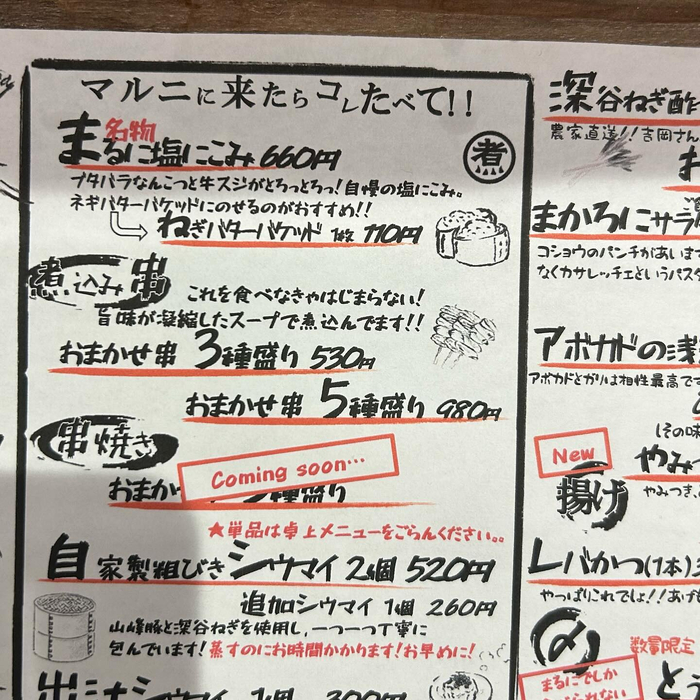 マルニに来たらコレたべて!!
名物
まるに塩にこみ 660円
煮
ブタバラなんこつと牛スジがとろっとろっ!自慢の塩にこみ。
ネギバターバケッドにのせるのがおすすめ!!
ねぎバターバケッド 1枚 110円
煮込み串
これを食べなきゃはじまらない!
旨味が凝縮したスープで煮込んでます!!
おまかせ串 3種盛り 530円
おまかせ串 5種盛り 980円
串焼き
Coming soon…
おまか
種盛り
★単品は卓上メニューをごらんください。。
自家製粗びきシウマイ 2個 520円
追加シウマイ 1個 260円
山峰豚と深谷ねぎを使用し、一つ一つ丁寧に
包んでいます!蒸すのにお時間かかります!お早めに!
シウマイ 1個 300円
深谷ねぎ酢
農家直送!!吉岡さん
まかろにサラ
コショウのパンチがあいま
なくカサレッチェというパス
アボカドの浅
アボカドとガリは相性最高で
その味
New
やみつ
揚げ
やみつき
レバかつ(1本)
やっぱりこれでしょ!!あげ
〆
数量限定
まるにでしか